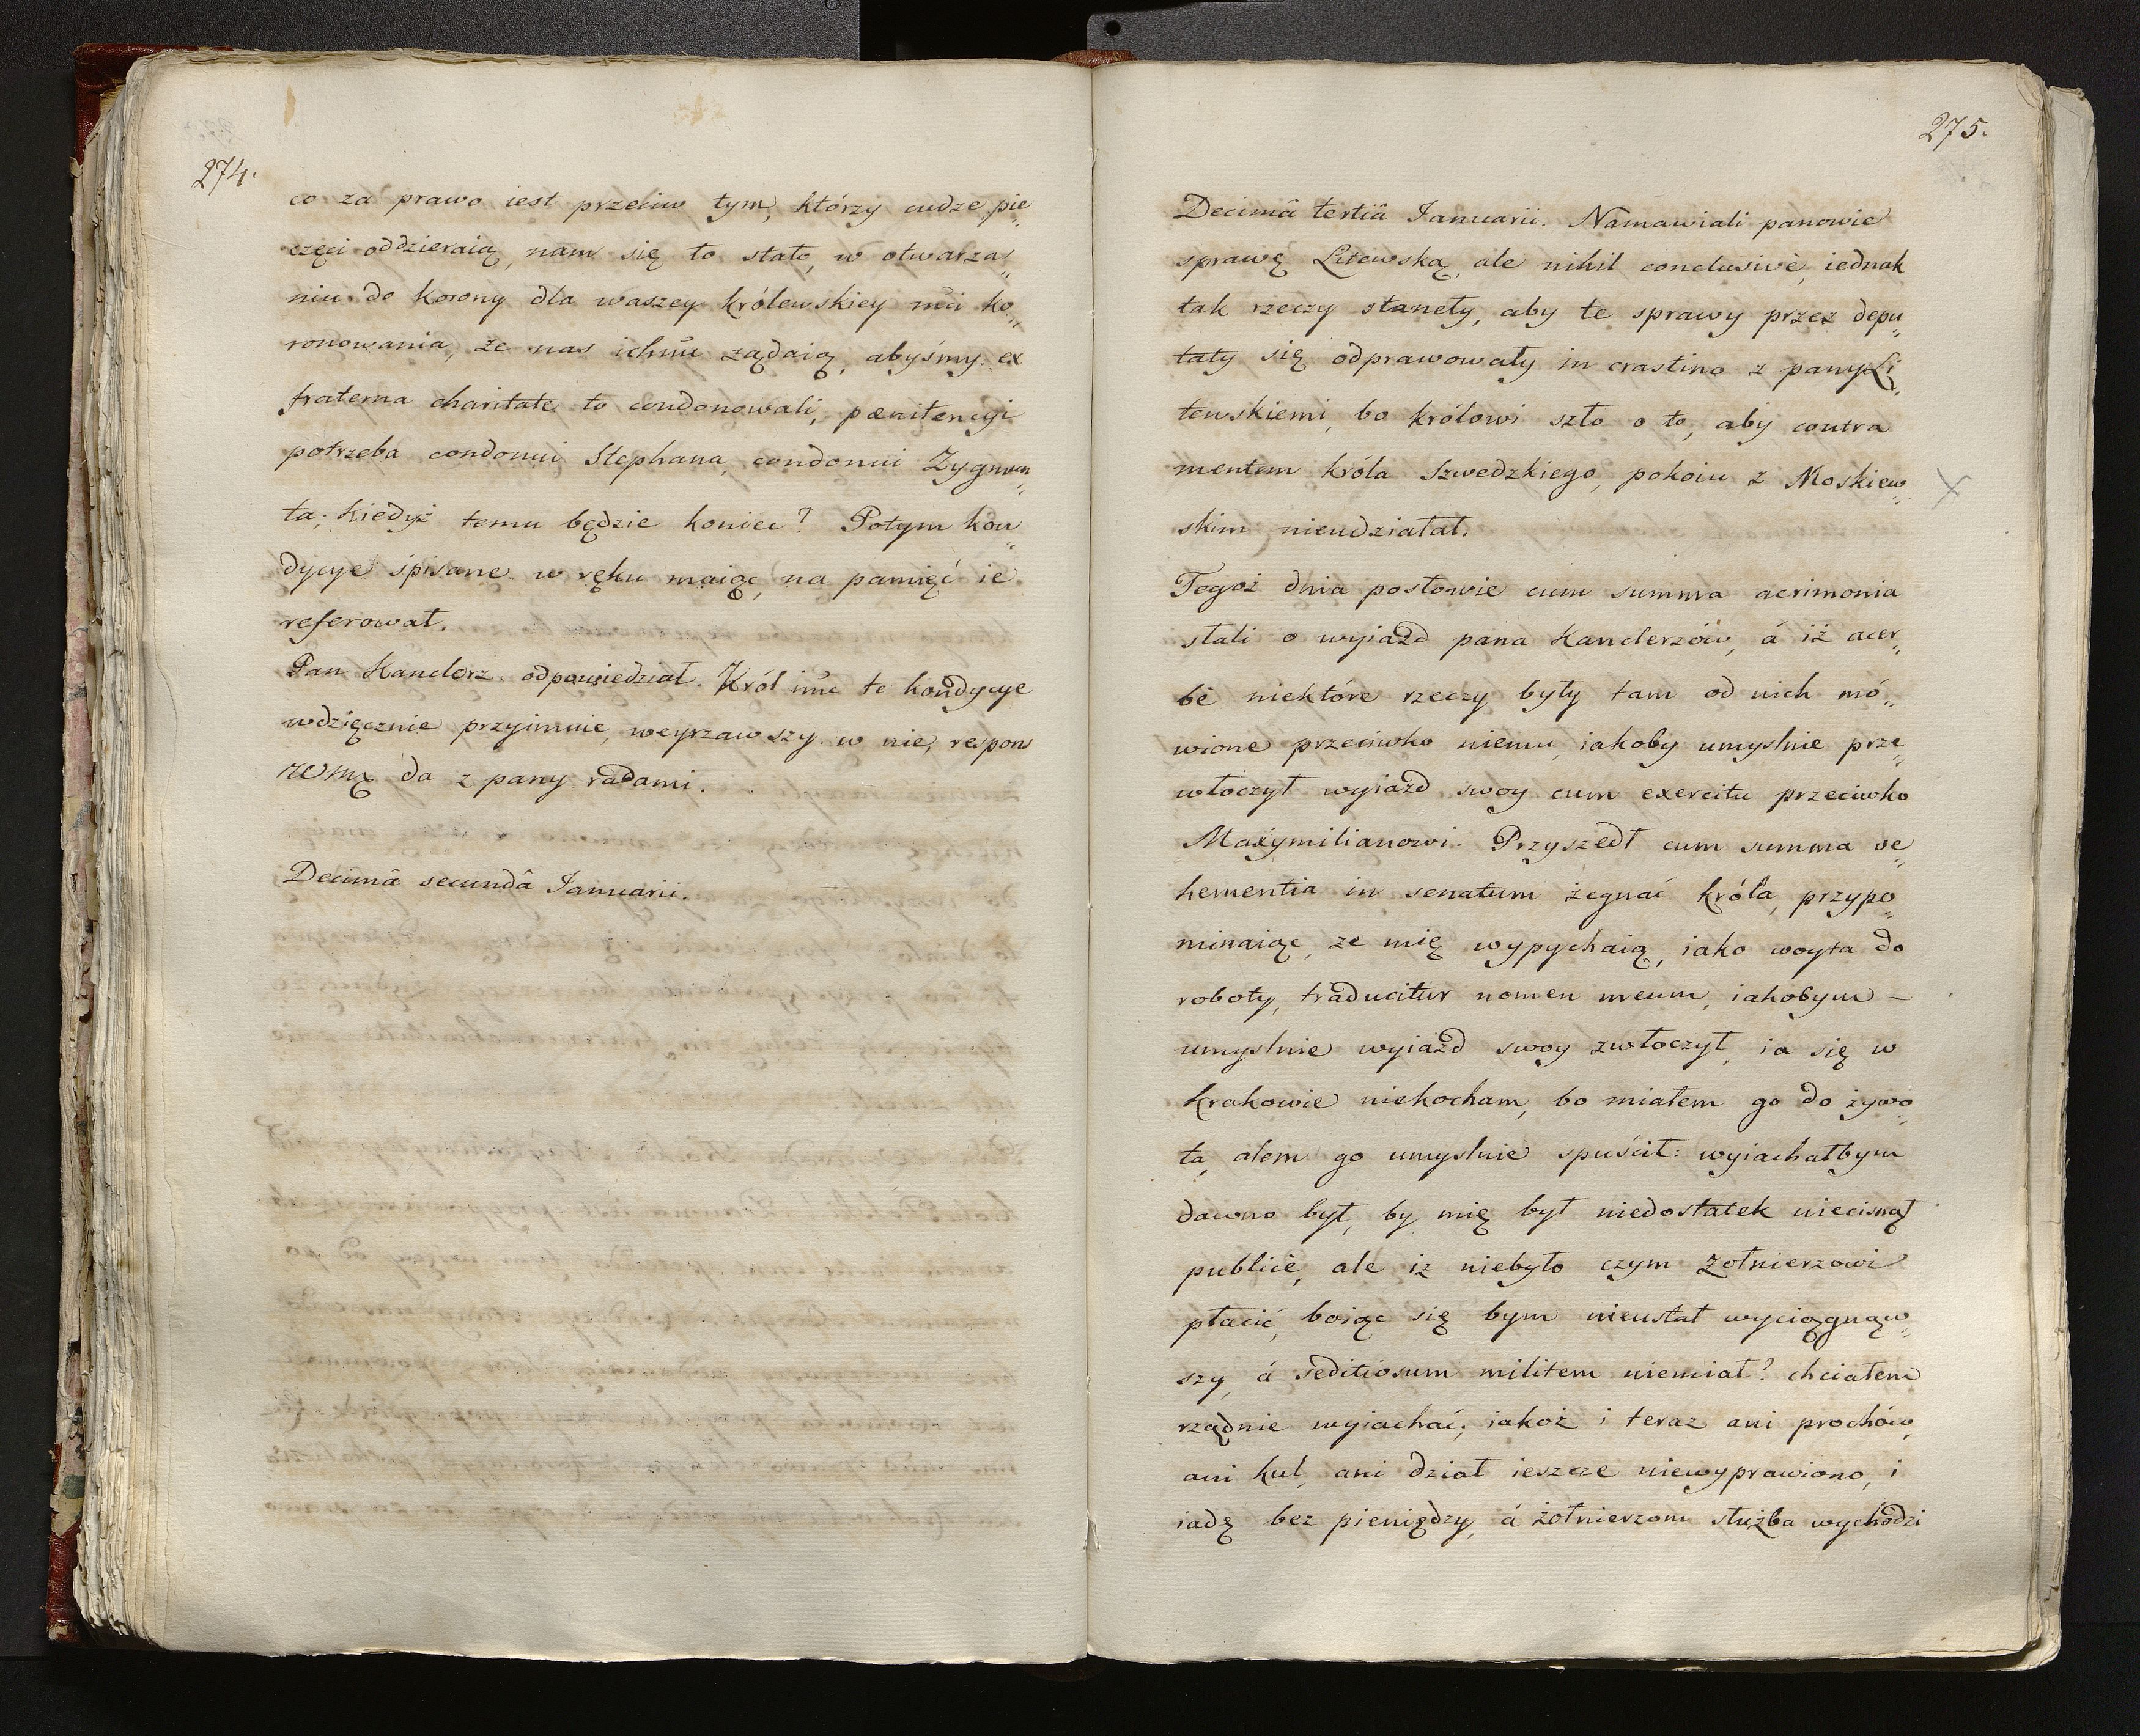 274.
co za prawo iest przeciw tym, którzy cudze pie„
częci oddzieraią, nam się to stało, w otwarza„
niu do korony dla waszey królewskiey mći ko„
ronowania, że nas ichmć żądaią, abyśmy ex
fraterna charitate to condonowali, pænitencyi
potrzeba condonui Stephana, condonui Zygmun„
ta; kiedyż temu będzie koniec? Potym kon„
dycye spisane w ręku maiąc, na pamięć ie
referował.
Pan Kanclerz odpowiedział. Król imć te kondycye
wdzięcznie przyimuie, weyrzawszy w nie, respons
WMę da z pany radami.
Decimâ secundâ Januarii.
275.
Decimâ tertiâ Januarii. Namawiali panowie
sprawę Litewską, ale nihil conclusivè, iednak
tak rzeczy stanęły, aby te sprawy przez depu„
taty się odprawowały in crastino z pany Li„
tewskiemi, bo królowi szło o to, aby contra
mentem króla Szwedzkiego, pokoiu z Moskiew„
skim nieudziałał.
Tegoż dnia posłowie cum summa acrimonia
stali o wyiazd pana Kanclerzów, á iż acer„
bè niektóre rzeczy były tam od nich mó„
wione przeciwko niemu, iakoby umyslnie prze„
włoczył wyiazd swoy cum exercitu przeciwko
Maxymilianowi. Przyszedł cum summa ve„
hementia in senatum żegnać króla, przypo„
minaiąc, że mię wypychaią, iako woyta do
roboty, traducitur nomen meum, iakobym –
umyslnie wyiazd swoy zwłoczył, ia się w
Krakowie niekocham, bo miałem go do żywo„
ta, alem go umyslnie spuścił: wyiachałbym
dawno był, by mię był niedostatek niecisnął
publicè, ale iż niebyło czym żołnierzowi
płacić, boiąc się bym nieustał wyciągnąw„
szy, á seditiosum militem niemiał? chciałem
rządnie wyiachać; iakoż i teraz ani prochów,
ani kul, ani dział ieszcze niewyprawiono, i
iadę bez pieniędzy, á żołnierzom służba wychodzi